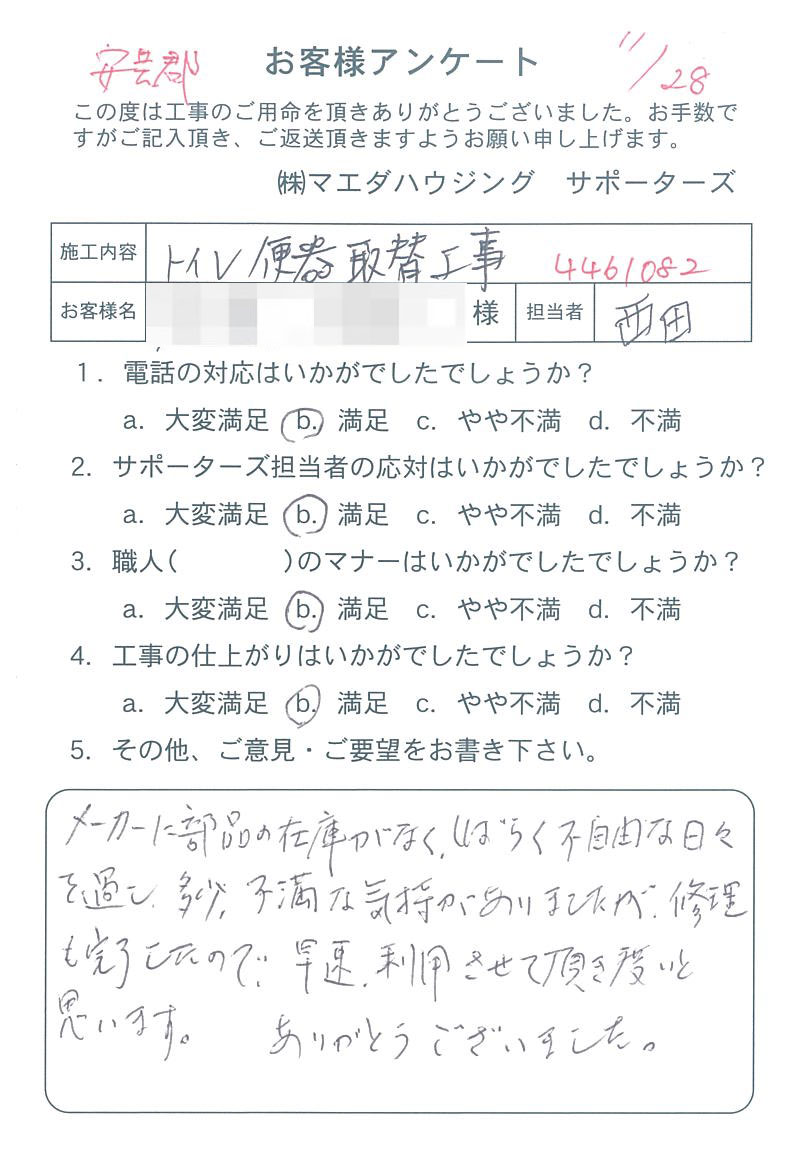 安芸郡 お客様アンケート 11/28
この度は工事のご用命を頂きありがとうございました。お手数で
すがご記入頂き、ご返送頂きますようお願い申し上げます。
㈱マエダハウジング　サポーターズ
施工内容 トイレ便器取替工事 4461082
お客様名 様 担当者 西田
1. 電話の対応はいかがでしたでしょうか？
a. 大変満足 b. 満足 c. やや不満 d. 不満
2. サポーターズ担当者の応対はいかがでしたでしょうか？
a. 大変満足 b. 満足 c. やや不満 d. 不満
3. 職人(　　　　)のマナーはいかがでしたでしょうか？
a. 大変満足 b. 満足 c. やや不満 d. 不満
4. 工事の仕上がりはいかがでしたでしょうか？
a. 大変満足 b. 満足 c. やや不満 d. 不満
5. その他、ご意見・ご要望をお書き下さい。
メーカーに部品の在庫がなく、しばらく不自由な日々
を過し、多少、不満な気持がありましたが、修理
も完了したので、早速、利用させて頂き度いと
思います。　ありがとうございました。